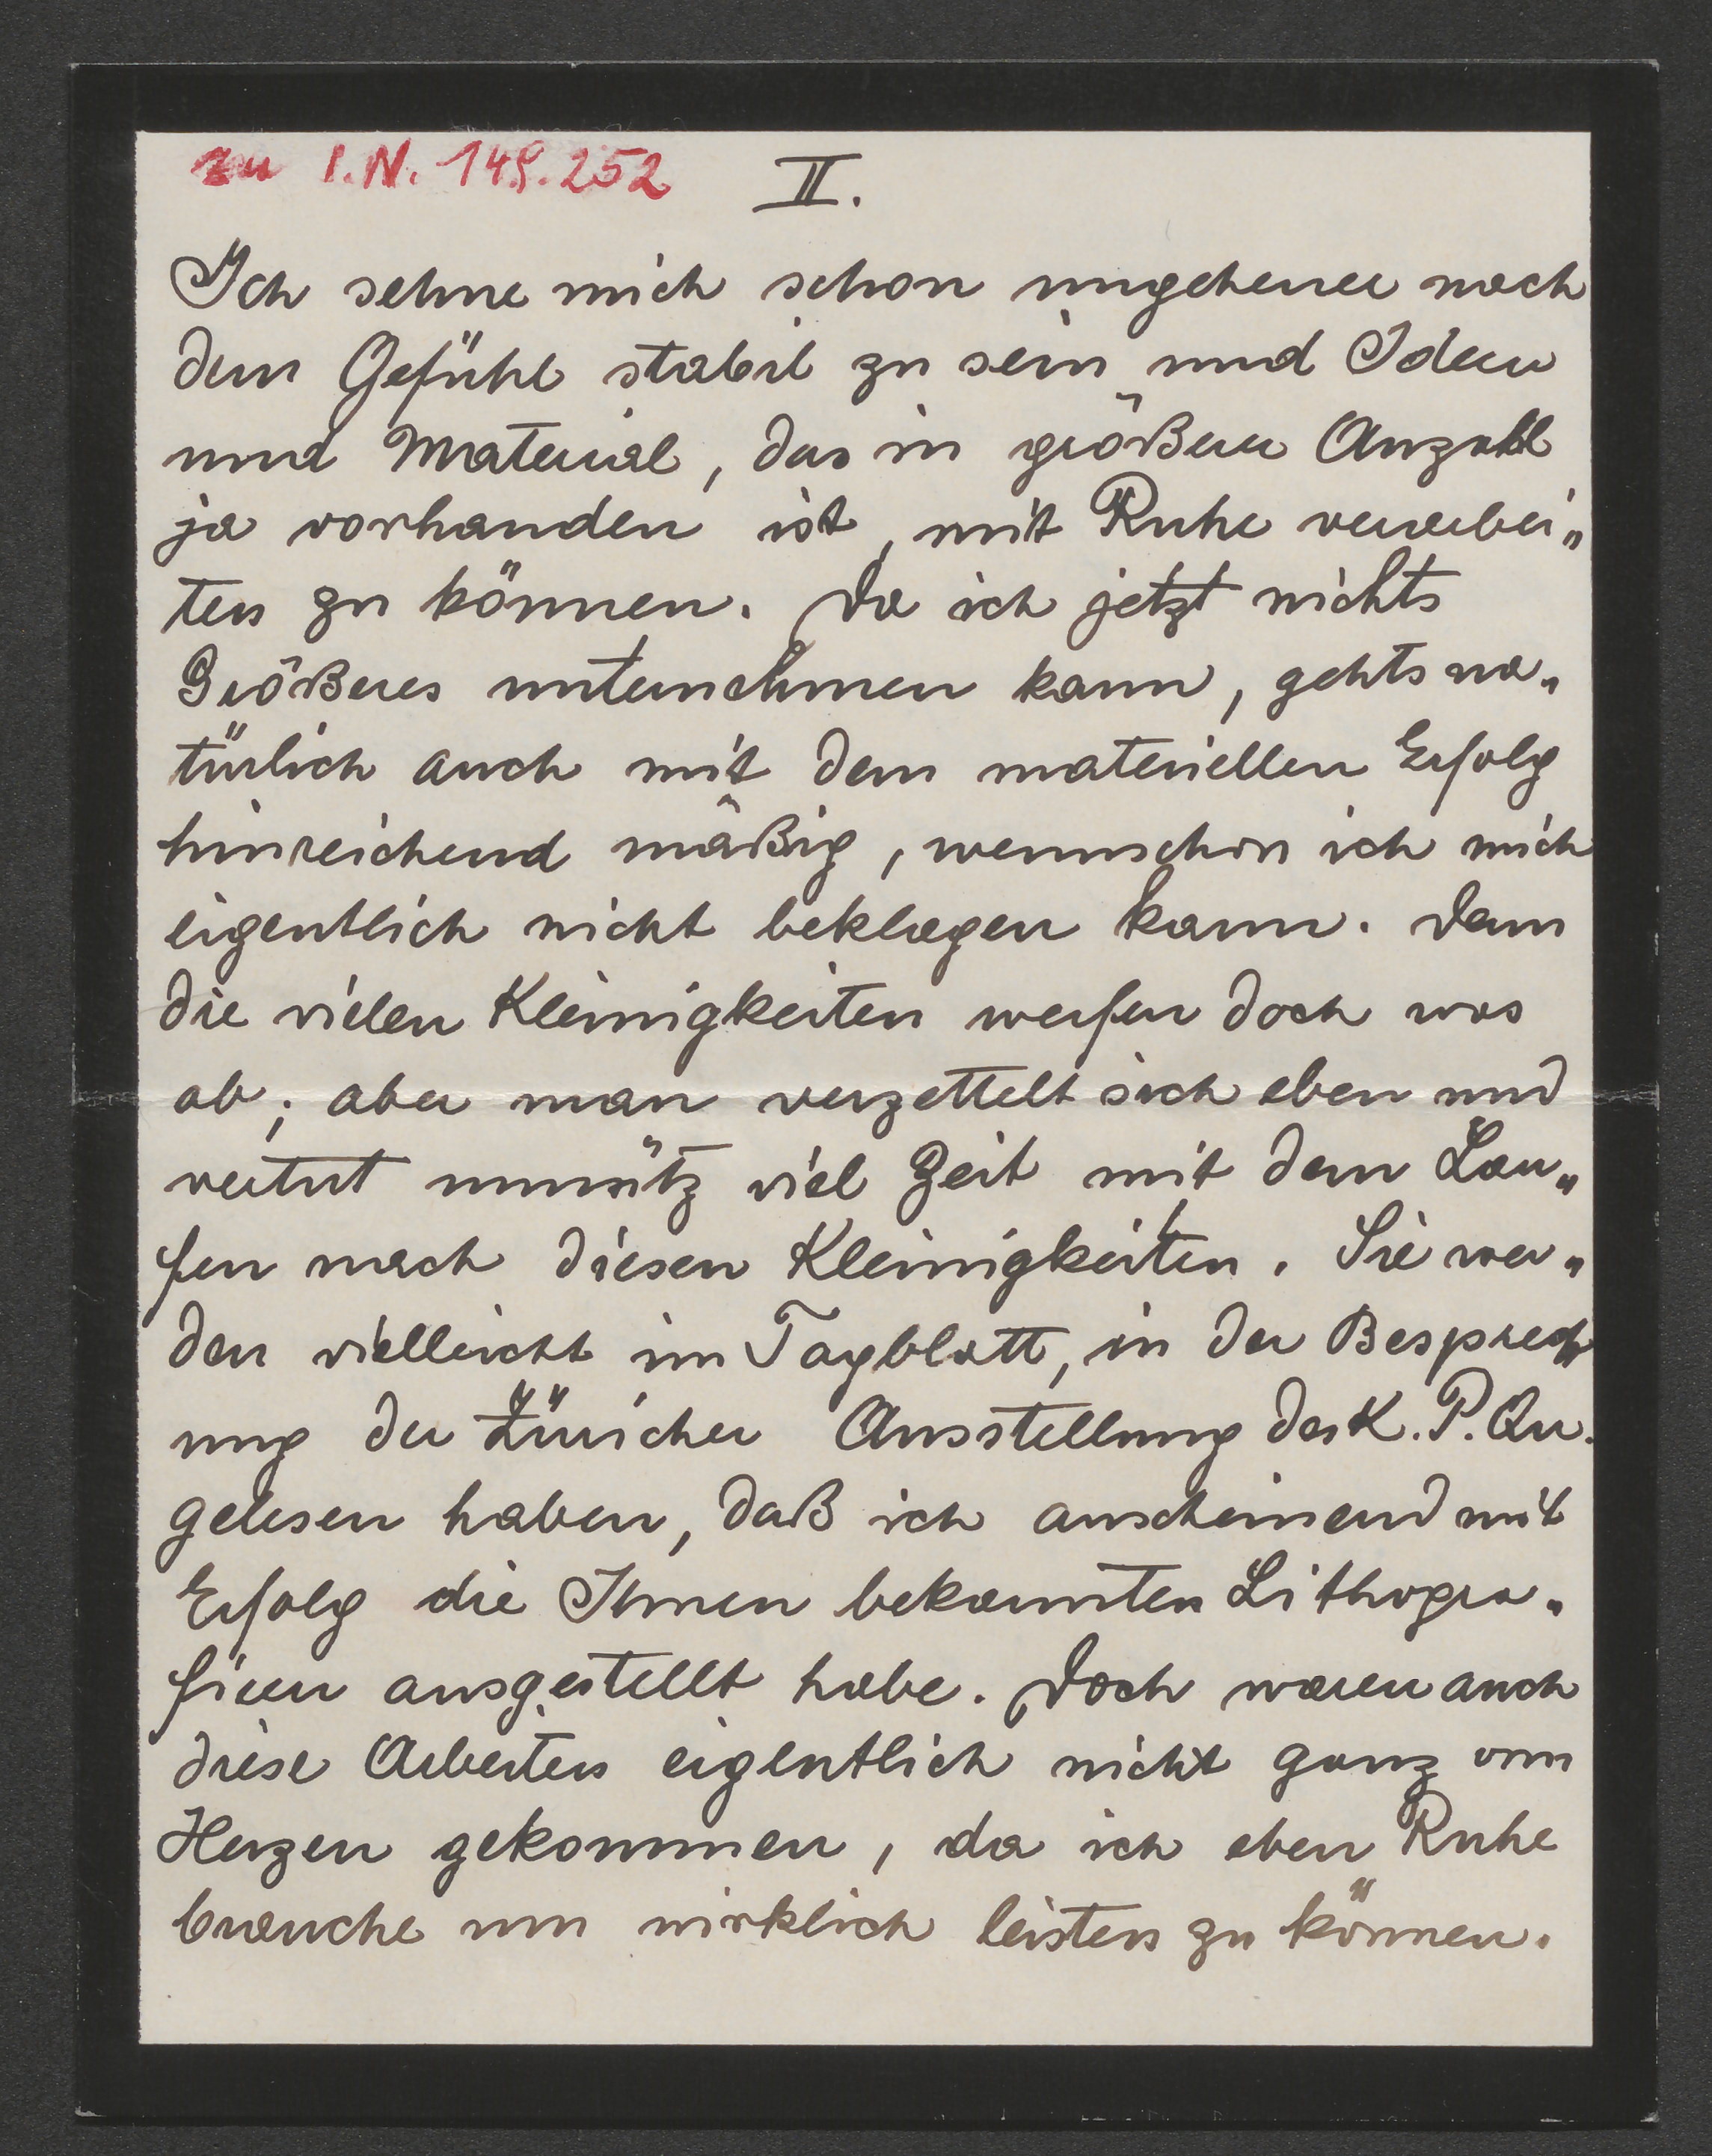 zu I.N. 149.252
II.
Ich sehne mich schon ungeheuer nach
dem Gefühl stabil zu sein und Ideen
und Material, das in größerer Anzahl
ja vorhanden ist, mit Ruhe verarbei„
ten zu können. Da ich jetzt nichts
Größeres unternehmen kann, gehts na„
türlich auch mit dem materiellen Erfolg
hinreichend mäßig, wennschon ich mich
eigentlich nicht beklagen kann. Denn
die vielen Kleinigkeiten werfen doch was
ab; aber man verzettelt sich eben und
vertut unnütz viel Zeit mit dem Lau„
fen nach diesen Kleinigkeiten. Sie wer„
den vielleicht im Tagblatt, in der Besprech
ung der Züricher Ausstellung des K.P.Qu.
gelesen haben, daß ich anscheinend mit
Erfolg die Ihnen bekannten Lithogra„
fieen ausgestellt habe. Doch waren auch
diese Arbeiten eigentlich nicht ganz vom
Herzen gekommen, da ich eben Ruhe
brauche um wirklich leisten zu können.